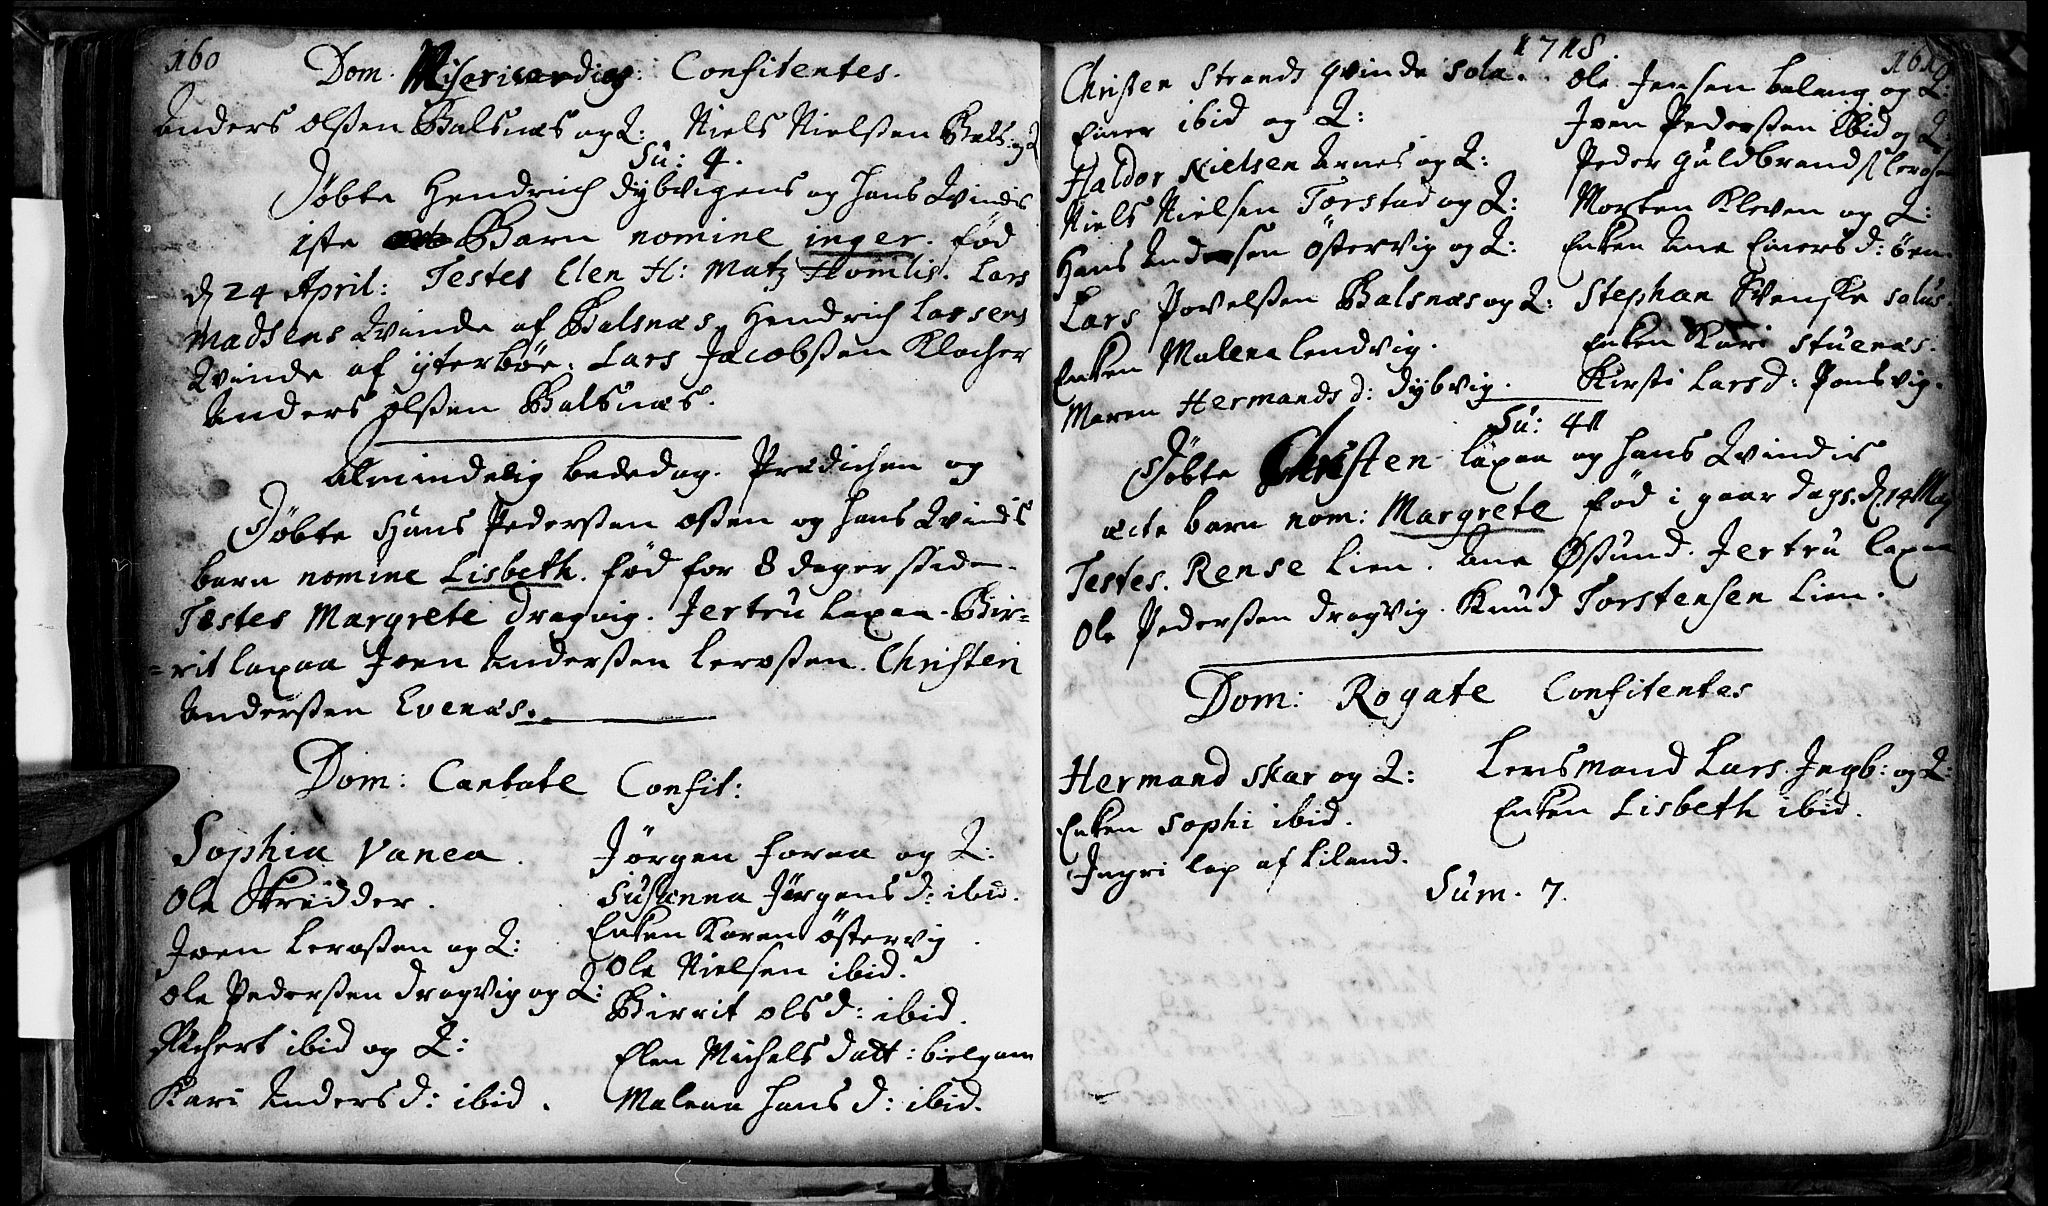 160
Dom. Misericordias: Confitentes.
Anders olßen Balsnæs og Q: Niels Nielßen Bals. og Q
Su: 4.
Døbte Hendrich Dybvigens og hans Qvindis
1ste Barn nomine inger. fød
d 24 April: Testes Elen H: Matz Homlis. Lars
Madsens Qvinde af Balsnæs. Hendrich Larsens
Qvinde af ytterbøe. Lars Jacobßen Klocher
Anders olßen Balsnæs.
Almindelig bededag. Prædichen og
Døbte Hans Pederßen oßen og hans Qvindis
barn nomine Lisbeth. fød for 8 dager siden.
Testes Margrete dragvig. Jertru Laxaa. Bir=
=rit laxaa Joen Anderßen Leroßen. Christen
Anderßen Evenæs.
Dom: Cantate Confit:
Sophia Vanea.
Ole Skrædder.
Joen Leroßen og Q:
Ole Pederßen dragvig og Q:
Richert ibid og Q:
Kari Anders d: ibid.
Jørgen foraa og Q:
Susanna Jørgens d: ibid.
Enken Karen østervig
Ole Nielsen ibid.
Birrit ols d: ibid.
Elen Michels datt:
Malena hans d: ibid.
1718
161
Christen Strands qvinde sola.
Einer ibid og Q:
Haldor Nielsen Arnes og Q:
Niels Nielsen Torstad og Q:
Hans Andersen østervig og Q:
Lars Povelßen Balsnæs og Q:
Enken Malena lendvig.
Maren Hermands d: dybvig.
Ole Jensen balang og Q:
Joen Pederßen ibid og Q:
Peder Guldbrands
Morten Kleven og Q:
Enken Ane Einers d:
Stephan Svenske solus
Enken Kari Stuenæs.
Kirsti Lars d:
Su: 41
Døbte Christen laxaa og hans Qvindis
ecte barn nom: Margrete fød i gaar dags. d 14 May
Testes. Rense Lien. Ane Øßund. Jertru laxaa
Ole Pederßen dragvig. Knud Torstensen Lien.
Dom: Rogate Confitentes
Hermand skar og Q:
Enken Sophi ibid.
Ingri lap af Liland.
Lensmand Lars Ingb: og Q:
Enken Lisbeth ibid.
Sum. 7.